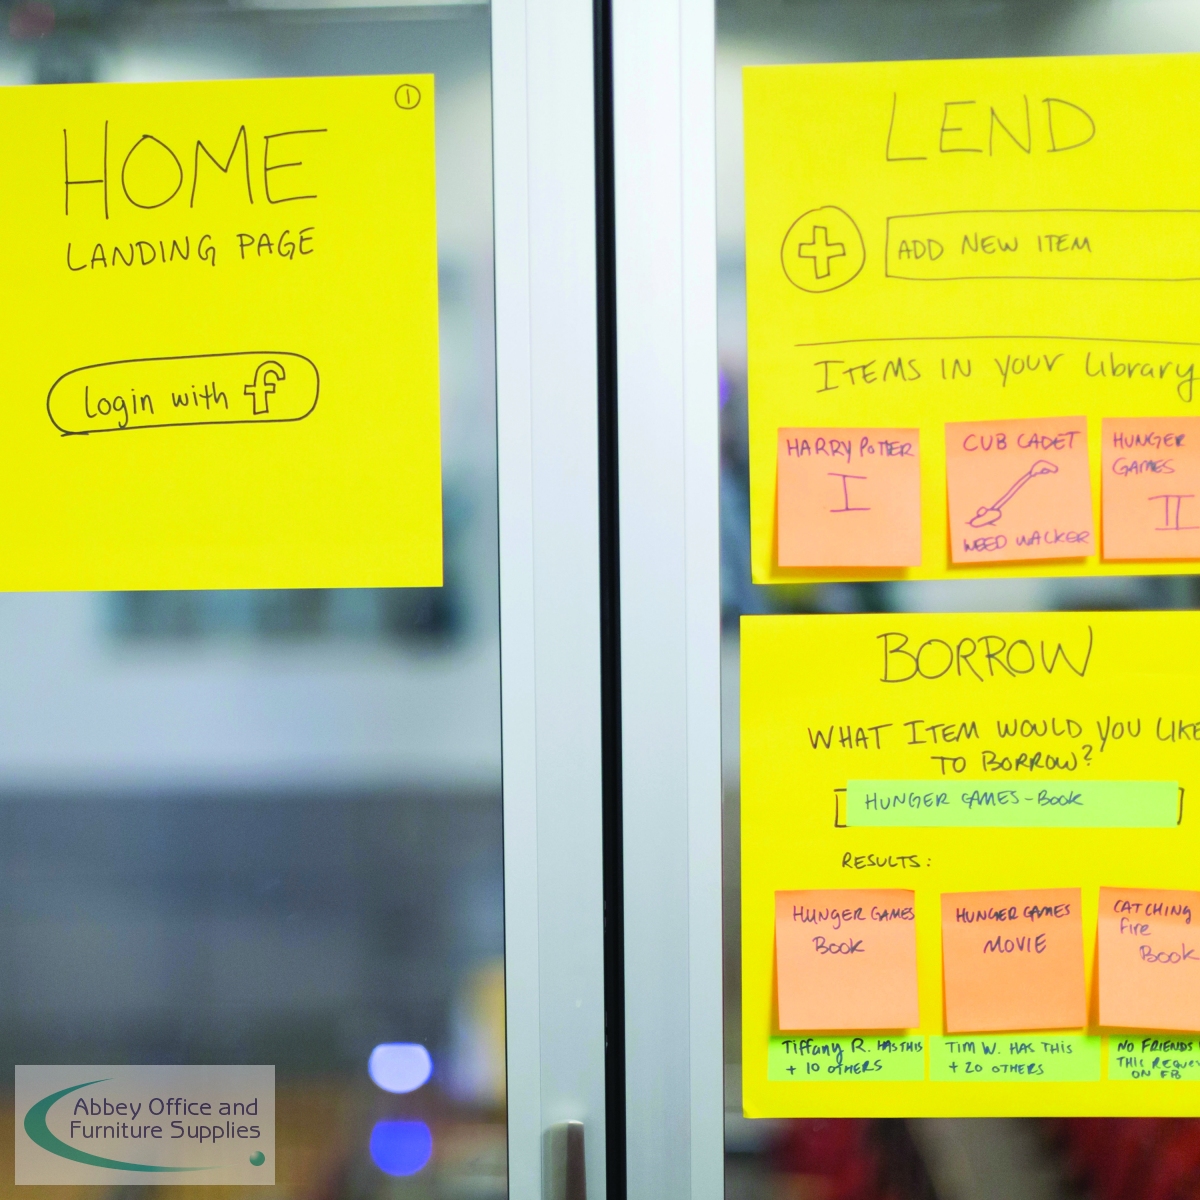 1
HOME
LANDING PAGE
Login with f
LEND
ADD NEW ITEM
ITEMS IN YOUR Library
HARRY POTTER
I
CUB CADET
WEED WACKER
HUNGER
GAMES
II
BORROW
WHAT ITEM WOULD YOU LIKE
TO BORROW?
HUNGER GAMES-BOOK
RESULTS:
HUNGER GAMES
BOOK
HUNGER GAMES
MOVIE
CATCHING
Fire
BOOK
Tiffany R. HAS THIS
+ 10 OTHERS
TIM W. HAS THIS
+ 20 OTHERS
NO FRIENDS
THIS
ON FB
Abbey Office and
Furniture Supplies